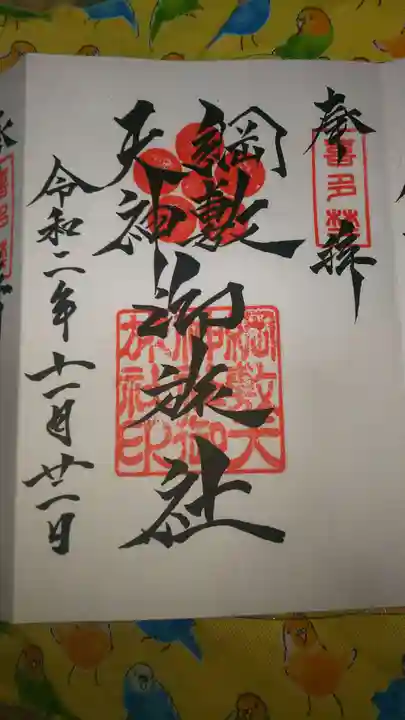 奉拝
喜多埜
綱敷
天神
御旅社
綱敷天
神社御
旅社印
令和二年十一月廿一日